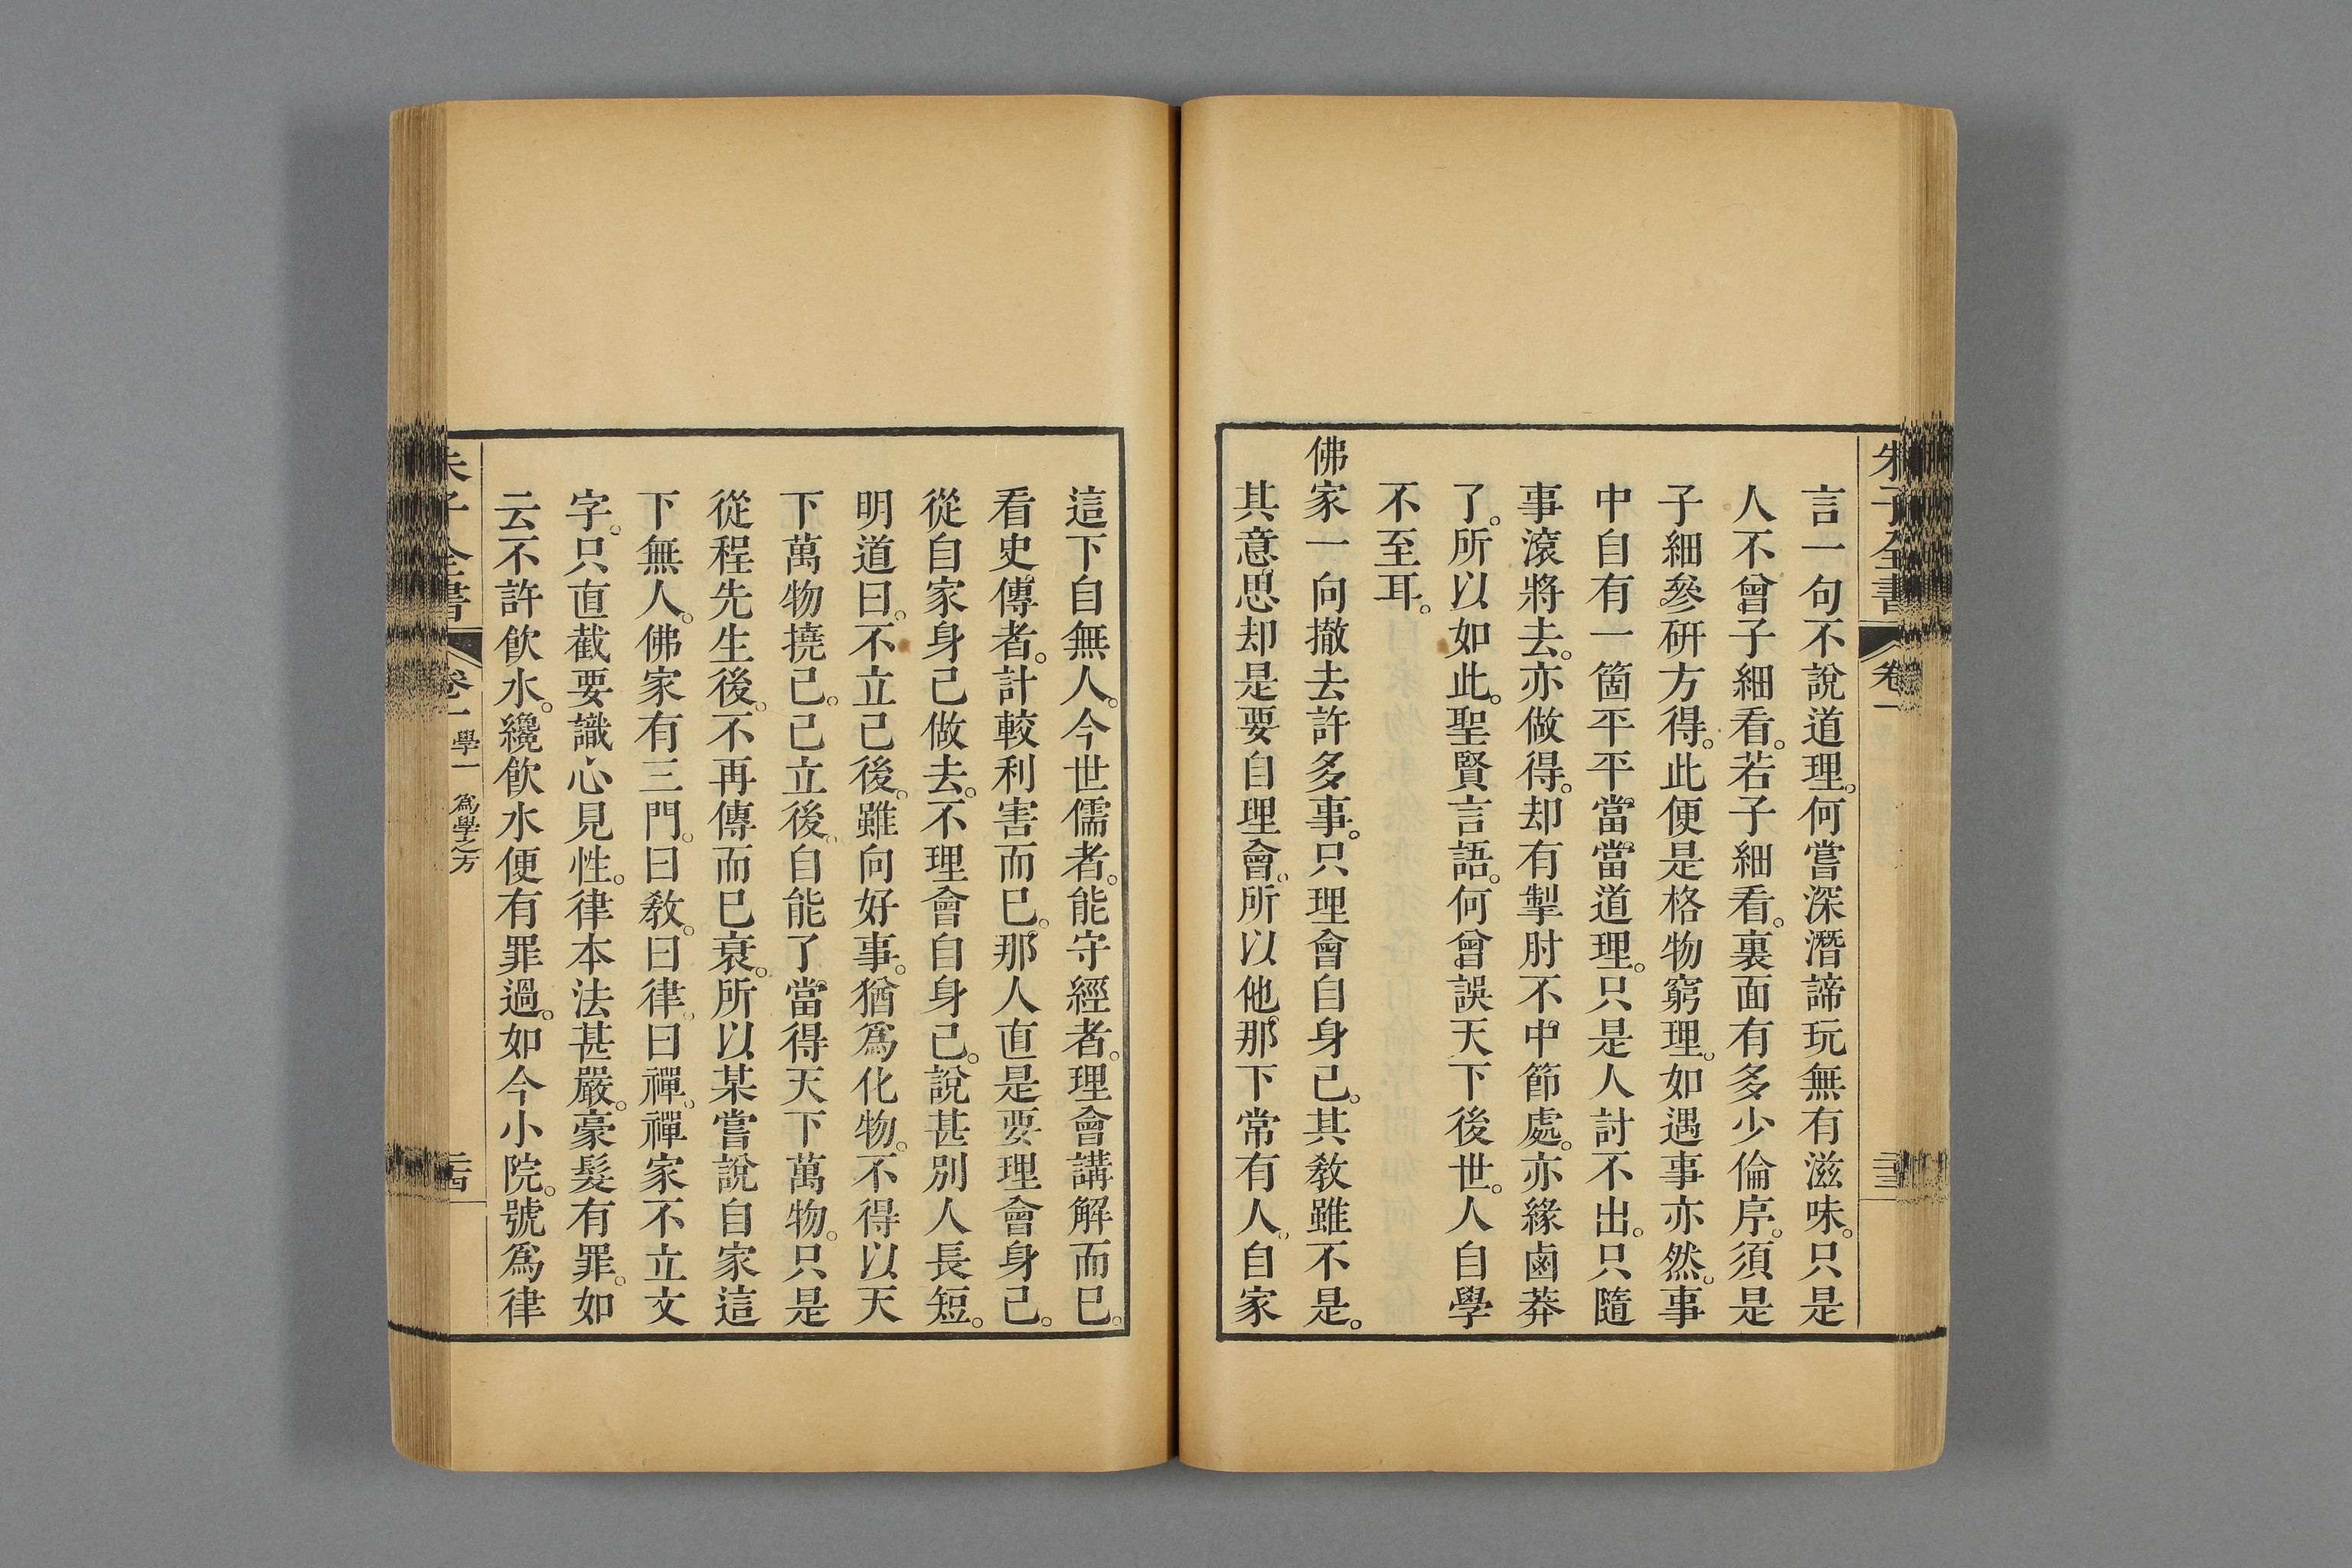 朱子全書 卷一 二十三
言一句不說道理。何嘗深潛諦玩無有滋味。只是
人不曾子細看。若子細看。裏面有多少倫序。須是
子細參硏方得。此便是格物窮理。如遇事亦然。事
中自有一箇平平當當道理。只是人討不出。只隨
事滾將去。亦做得。却有掣肘不中節處。亦緣鹵莽
了。所以如此。聖賢言語。何曾誤天下後世。人自學
不至耳。
佛家一向撤去許多事。只理會自身己。其敎雖不是。
其意思却是要自理會。所以他那下常有人。自家
這下自無人。今世儒者。能守經者。理會講解而已。
看史傳者。計較利害而已。那人直是要理會身己。
從自家身己做去。不理會自身己。說甚別人長短。
明道曰。不立己後。雖向好事。猶爲化物。不得以天
下萬物撓己。己立後。自能了當得天下萬物。只是
從程先生後。不再傳而已衰。所以某嘗說自家這
下無人。佛家有三門。曰敎。曰律。曰禪。禪家不立文
字。只直截要識心見性。律本法甚嚴。豪髮有罪。如
云不許飮水。纔飮水便有罪過。如今小院。號爲律
朱子全書 卷一 學一 爲學之方 二十四